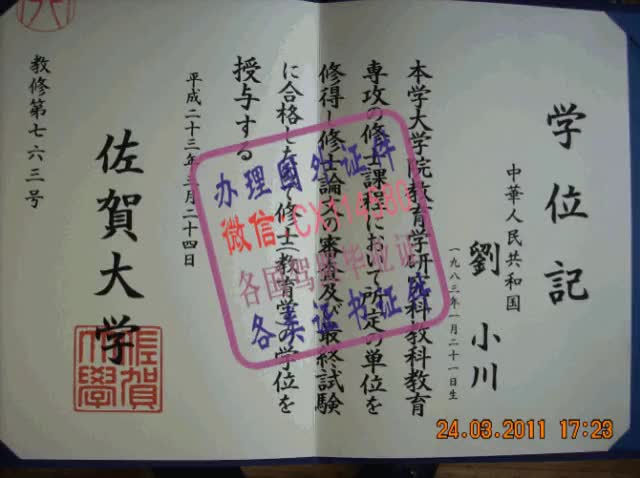 学位記
中華人民共和国
劉小川
一九八三年一月二十一日生
本学大学院教育学研究科教科教育
専攻の修士課程において所定の単位を
修得し修士論文の審査及び最終試験
に合格したので修士(教育学)の学位を
授与する
平成二十三年三月二十四日
佐賀大学
教修第七六三号
佐賀
大學
办理国外证件
微信:
各国驾照毕业证
各类证书证件
24.03.2011 17:23